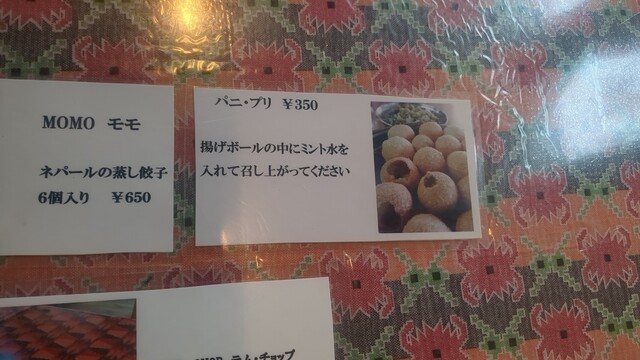 MOMO モモ
ネパールの蒸し餃子
6個入り ¥650
パニ・プリ ¥350
揚げボールの中にミント水を
入れて召し上がってください
ラム・チョップ